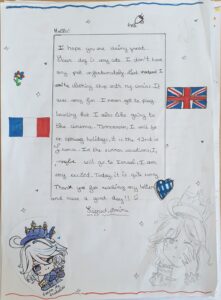 Hello!
I hope you are doing great.
Your dog is very cute. I don't have
any pet unfortunately. But I
quite clothing shop with my cousins. It
was very fun. I never got to play
bowling but I also like going to
the cinema. Tomorrow, I will be
in holidays, it is the 42nd
France. In the summer vacations, I
maybe will go to Israel, I am
very excited. Today, it is quite sunny.
Thank you for reading my letter
and have a good day!!